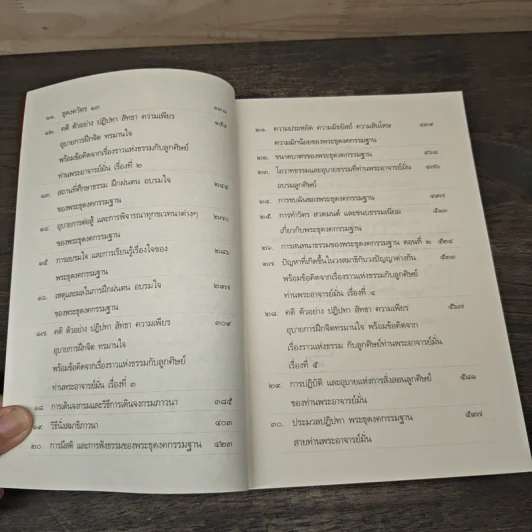 ๑๑. ธุดงควัตร ๑๓ ๑๓๘
๑๒. คติ ตัวอย่าง ปฏิปทา ศัทธา ความเพียร ๑๕๔
อุบายการฝึกจิต ทรมานใจ
พร้อมข้อคิดจากเรื่องราวแห่งธรรมกับลูกศิษย์
ท่านพระอาจารย์มั่น เรื่องที่ ๒
๑๓. สถานที่ศึกษาธรรม ฝึกฝนตน อบรมใจ ๒๔๔
ของพระธุดงคกรรมฐาน
๑๔. อุบายการต่อสู้ และการพิจารณาทุกขเวทนาต่างๆ ๒๗๐
ของพระธุดงคกรรมฐาน
๑๕. การอบรมใจ และการเรียนรู้เรื่องใจของ ๒๘๖
พระธุดงคกรรมฐาน
๑๖. เหตุและผลในการฝึกฝนตน อบรมใจ ๒๙๗
ของพระธุดงคกรรมฐาน
๑๗. คติ ตัวอย่าง ปฏิปทา ศัทธา ความเพียร ๓๐๔
อุบายการฝึกจิต ทรมานใจ
พร้อมข้อคิดจากเรื่องราวแห่งธรรมกับลูกศิษย์
ท่านพระอาจารย์มั่น เรื่องที่ ๓
๑๘. การเดินจงกรมและวิธีการเดินจงกรมภาวนา ๓๘๕
๑๙. วิธีนั่งสมาธิภาวนา ๔๐๓
๒๐. การมีสติ และการฟังธรรมของพระธุดงคกรรมฐาน ๔๒๓
๒๑. ความประหยัด ความมัธยัสถ์ ความสันโดษ
ความมักน้อยของพระธุดงคกรรมฐาน
๒๒. ขนาดบาตรของพระธุดงคกรรมฐาน
๒๓. โอวาทธรรมและอุบายธรรมที่ท่านพระอาจารย์มั่น
อบรมลูกศิษย์
๒๔. การขบฉันของพระธุดงคกรรมฐาน
๒๕. การทำวัตร สวดมนต์ และขนบธรรมเนียม
เกี่ยวกับพระธุดงคกรรมฐาน
๒๖. การสนทนาธรรมของพระธุดงคกรรมฐาน ตอนที่ ๒ ๕๒๔
๒๗. ปัญหาที่เกิดขึ้นในวงสมาธิกับวงปัญญาต่างกัน ๕๓๓
พร้อมข้อคิดจากเรื่องราวแห่งธรรมกับลูกศิษย์
ท่านพระอาจารย์มั่น เรื่องที่ ๔
๒๘. คติ ตัวอย่าง ปฏิปทา ศัทธา ความเพียร ๕๖๗
อุบายการฝึกจิตทรมานใจ พร้อมข้อคิดจาก
เรื่องราวแห่งธรรม กับลูกศิษย์ท่านพระอาจารย์มั่น
เรื่องที่ ๕
๒๙. การปฏิบัติ และอุบายแห่งการสั่งสอนลูกศิษย์ ๕๘๑
ของท่านพระอาจารย์มั่น
๓๐. ประมวลปฏิปทา พระธุดงคกรรมฐาน ๕๙๗
สายท่านพระอาจารย์มั่น